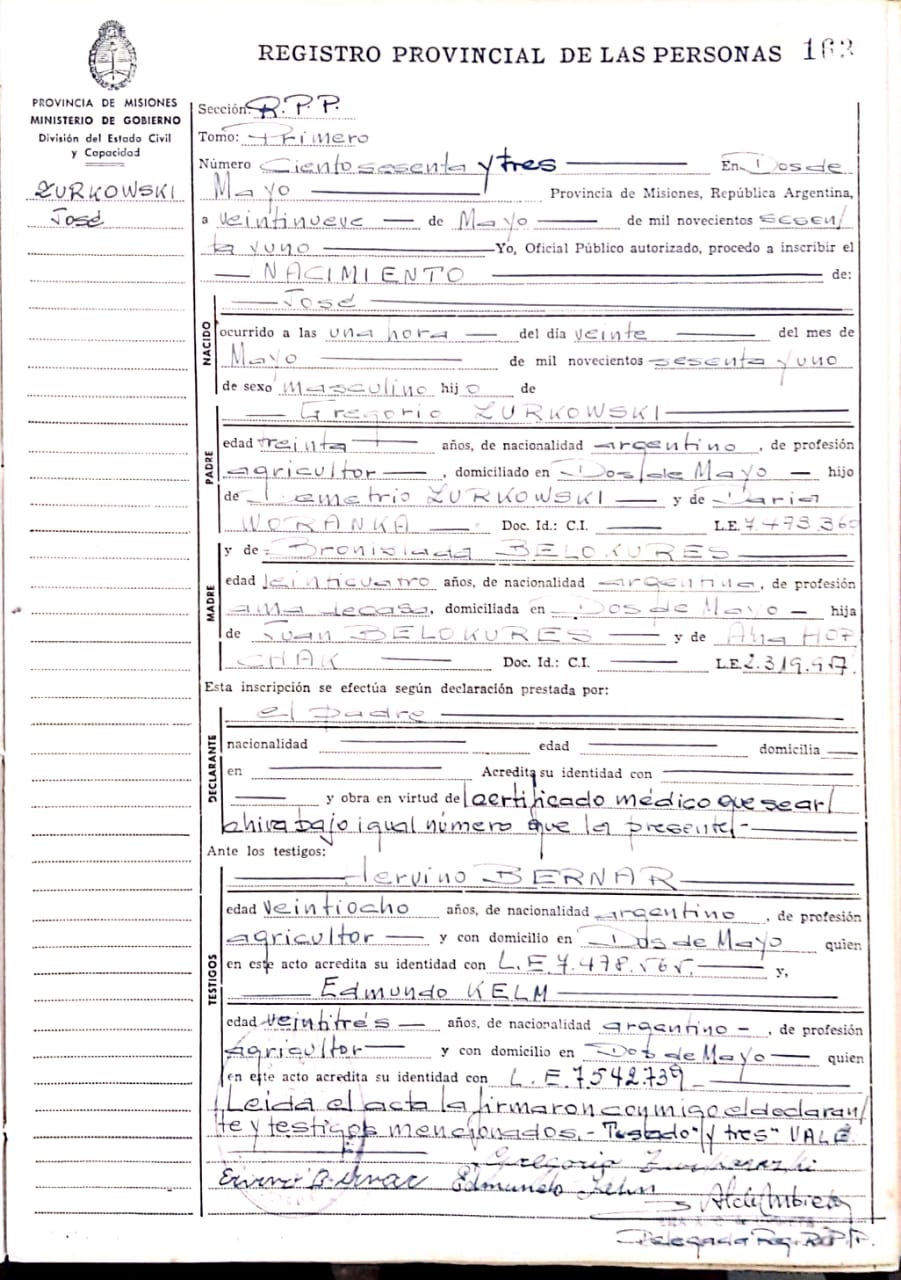 REGISTRO PROVINCIAL DE LAS PERSONAS 163
PROVINCIA DE MISIONES
MINISTERIO DE GOBIERNO
División del Estado Civil
y Capacidad
ZURKOWSKI
José
Sección: R.P.P.
Tomo: Primero
Número Ciento sesenta y tres En Dos de
Mayo Provincia de Misiones, República Argentina,
a veintinueve de Mayo de mil novecientos sesen/
ta y uno Yo, Oficial Público autorizado, procedo a inscribir el
NACIMIENTO de:
NACIDO
José
ocurrido a las una hora del día veinte del mes de
Mayo de mil novecientos sesenta y uno
de sexo masculino hijo de
PADRE
Gregorio ZURKOWSKI
edad treinta años, de nacionalidad argentino, de profesión
agricultor, domiciliado en Dos de Mayo hijo
de Demetrio ZURKOWSKI y de Daria
WORANKA Doc. Id.: C.I. L.E. 7.473.360
MADRE
y de: BELOKURES
edad veinticuatro años, de nacionalidad argentina, de profesión
ama de casa, domiciliada en Dos de Mayo hija
de Juan BELOKURES y de Ana
CHAK Doc. Id.: C.I. L.E.
Esta inscripción se efectúa según declaración prestada por:
DECLARANTE
el padre
nacionalidad edad domicilia
en Acredita su identidad con
y obra en virtud del certificado médico que se ar/
chiva bajo igual número que la presente.-
Ante los testigos:
TESTIGOS
BERNAR
edad veintiocho años, de nacionalidad argentino, de profesión
agricultor y con domicilio en Dos de Mayo quien
en este acto acredita su identidad con L.E. 7.478.565. y,
Edmundo KELM
edad veintitrés años, de nacionalidad argentino -, de profesión
agricultor y con domicilio en Dos de Mayo quien
en este acto acredita su identidad con L.E. 7.542.739
Leida el acta la firmaron conmigo el declaran/
te y testigos mencionados.- Testado "y tres" VALE
Gregorio Zurkowski
Edmundo Kelm
Delegada Reg. R.P.P.